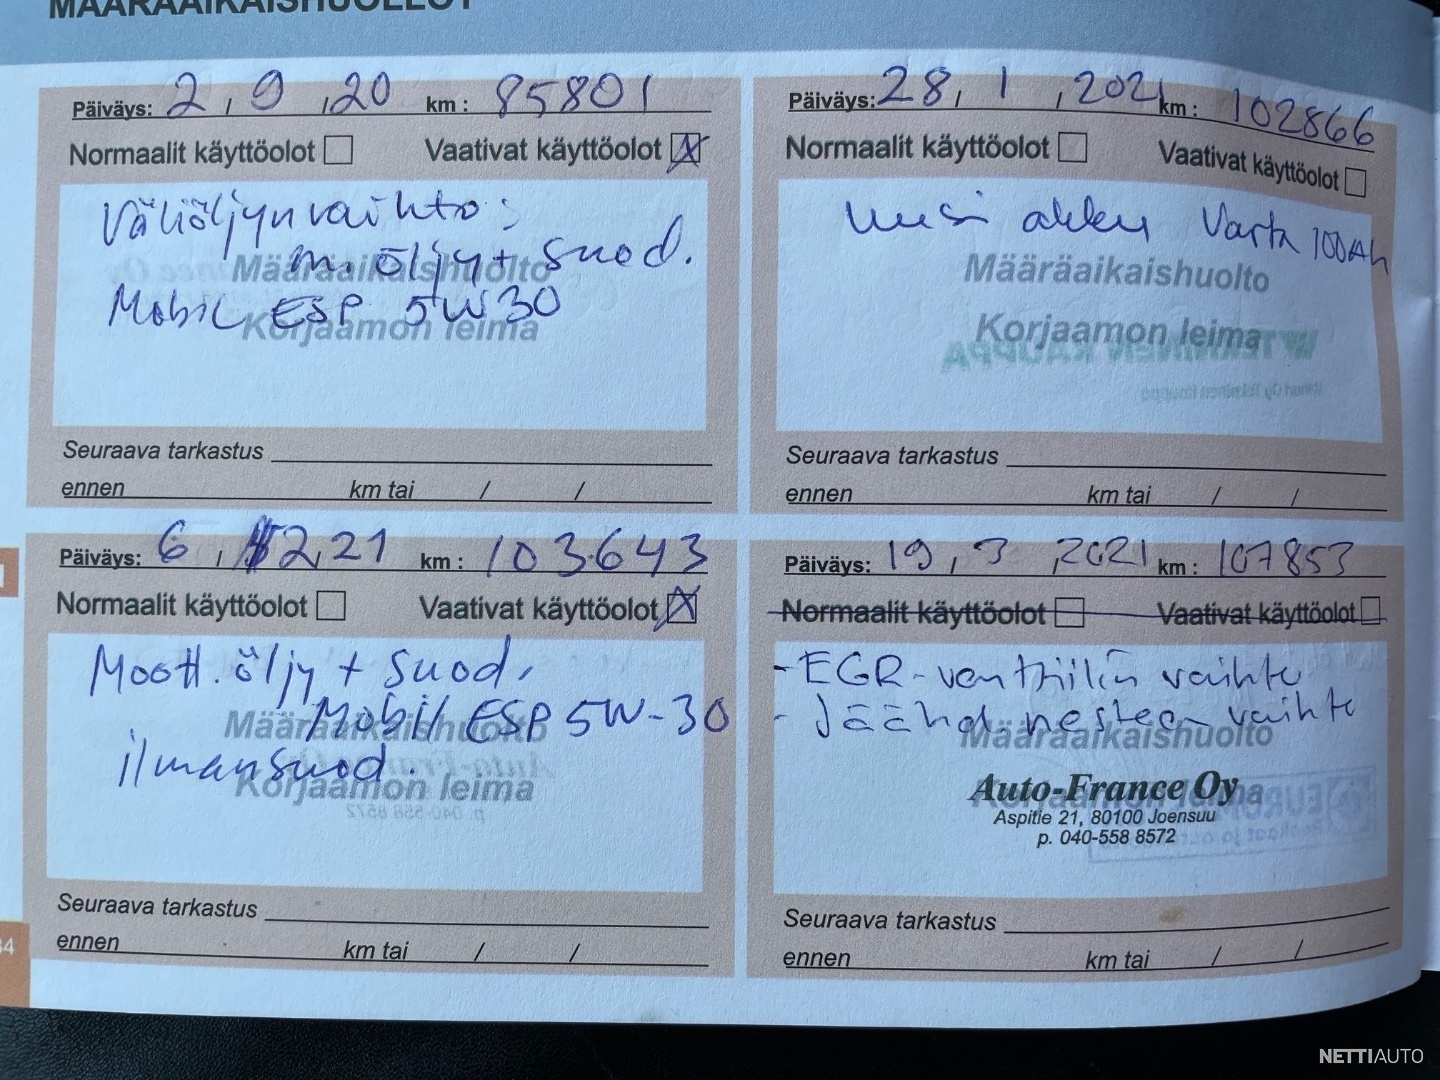 MÄÄRÄAIKAISHUOLLOT
Päiväys: 2, 9, 20 km: 85801
Normaalit käyttöolot Vaativat käyttöolot X
Väliöljynvaihto:
m.öljy + suod.
Määräaikaishuolto
Mobil ESP 5W30
Korjaamon leima
Seuraava tarkastus
ennen km tai / /
Päiväys: 28, 1, 2021 km: 102866
Normaalit käyttöolot Vaativat käyttöolot
Uusi akku Varta 100Ah
Määräaikaishuolto
Korjaamon leima
Seuraava tarkastus
ennen km tai / /
Päiväys: 6, 2, 21 km: 103643
Normaalit käyttöolot Vaativat käyttöolot X
Moott. öljy + suod,
Mobil ESP 5W-30
Määräaikaishuolto
ilmansuod.
Korjaamon leima
Seuraava tarkastus
ennen km tai / /
Päiväys: 19, 3, 2021 km: 107853
Normaalit käyttöolot Vaativat käyttöolot
- EGR-venttiilin vaihto
- Jäähd. nesteen vaihto
Määräaikaishuolto
Auto-France Oy
Korjaamon leima
Aspitie 21, 80100 Joensuu
p. 040-558 8572
Seuraava tarkastus
ennen km tai / /
34
NETTIAUTO